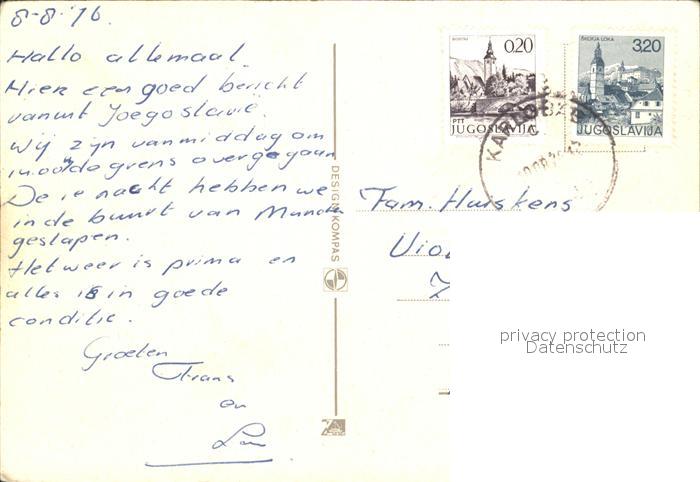 8-8-'76.
Hallo allemaal.
Hier een goed bericht
vanuit Joegoslavië.
Wij zijn vanmiddag om
14.00 u de grens overgegaan
De 1e nacht hebben we
in de buurt van Munchen
geslapen.
Het weer is prima en
alles is in goede
conditie.
Groeten
Frans
en
DESIGN KOMPAS
BOHINJ
0,20
PTT
JUGOSLAVIJA
ŠKOFJA LOKA
3,20
JUGOSLAVIJA
Fam. Huiskens
privacy protection
Datenschutz